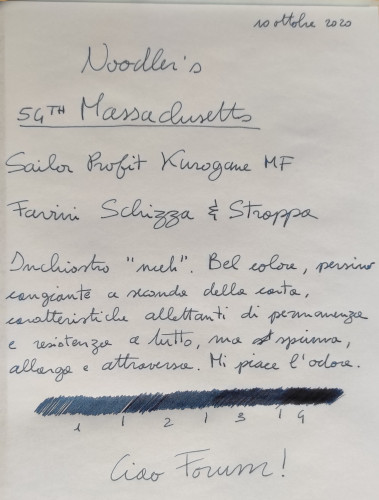 10 ottobre 2020
Noodler's
54TH Massachusetts
Sailor Profit Kurogane MF
Favini Schizza & Strappa
Inchiostro "nich". Bel colore, persino
cangiante a seconda della carta,
caratteristiche allettanti di permanenza
e resistenza a tutto, ma spiuma,
allarga e attraversa. Mi piace l'odore.
1 1 2 1 3 1 4
Ciao Forum!